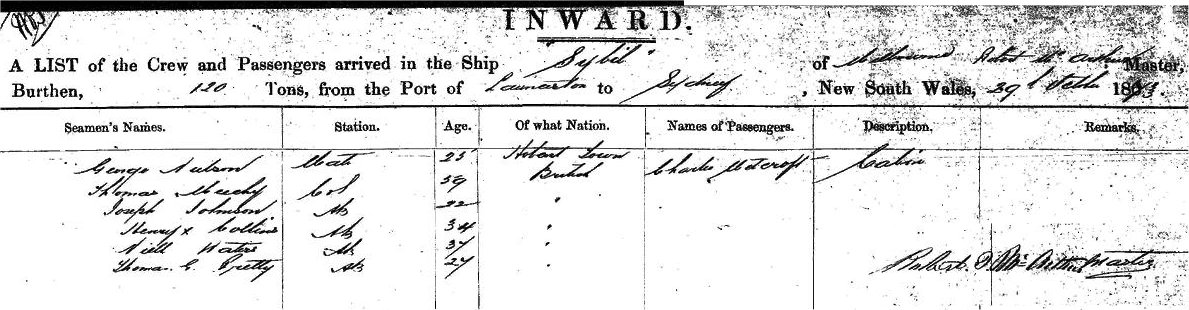 INWARD.
A LIST of the Crew and Passengers arrived in the Ship "Sybil" of Melbourne Robt Mc Arthur Master,
Burthen, 120 Tons, from the Port of Launceston to Sydney, New South Wales, 1873.
Seamen's Names. Station. Age. Of what Nation. Names of Passengers. Description. Remarks.
George Nelson Mate 25 Hobart Town Charles Metcroft Cabin
Thomas Meechy Cook 59 British
Joseph Johnson AB 22 "
Henry x Collins AB 34 "
Niell Waters AB 37 "
Thomas G. Pretty AB 27 "
Robert Mc Arthur Master